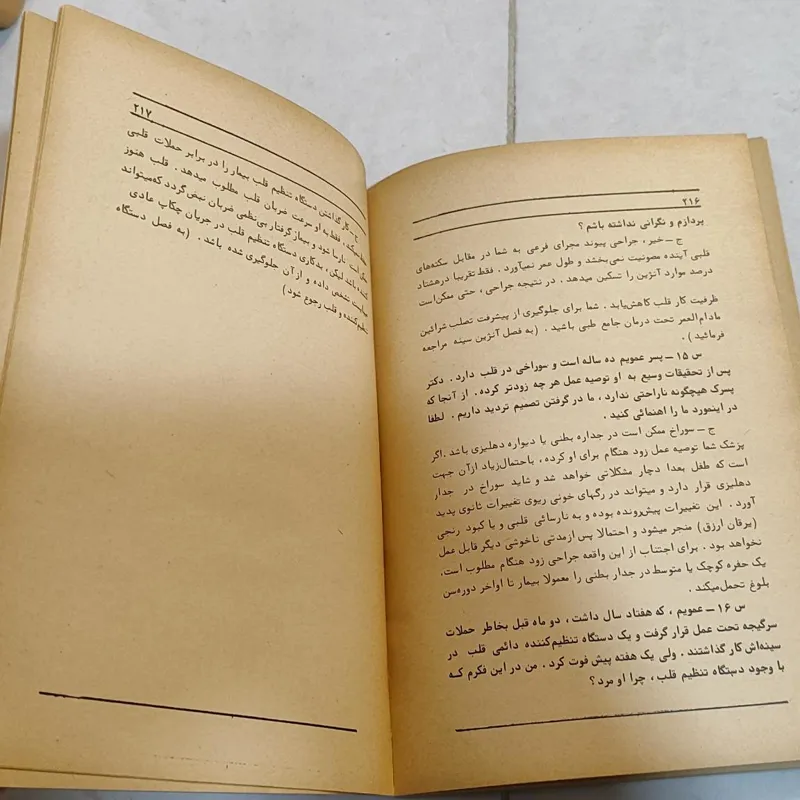 ۲۱۶
پردازم و نگرانی نداشته باشم ؟
ج ــ خیر ، جراحی پیوند مجرای فرعی به شما در مقابل سکته‌های
قلبی آینده مصونیت نمی‌بخشد و طول عمر نمیآورد . فقط تقریبا درهشتاد
درصد موارد آنژین را تسکین میدهد . در نتیجه جراحی ، حتی ممکن‌است
ظرفیت کار قلب کاهش‌یابد . شما برای جلوگیری از پیشرفت تصلب شرائین
مادام‌العمر تحت درمان جامع طبی باشید . (به فصل آنژین سینه مراجعه
فرمائید ) .
س ۱۵ ــ پسر عمویم ده ساله است و سوراخی در قلب دارد . دکتر
پس از تحقیقات وسیع به او توصیه عمل هر چه زودتر کرده . از آنجا که
پسرک هیچگونه ناراحتی ندارد ، ما در گرفتن تصمیم تردید داریم . لطفا
در اینمورد ما را اهنمائی کنید .
ج ــ سوراخ ممکن است در جداره بطنی یا دیواره دهلیزی باشد .اگر
پزشک شما توصیه عمل زود هنگام برای او کرده ، باحتمال‌زیاد ازآن جهت
است که طفل بعدا دچار مشکلاتی خواهد شد و شاید سوراخ در جدار
دهلیزی قرار دارد و میتواند در رگهای خونی ریوی تغییرات ثانوی پدید
آورد . این تغییرات پیش‌رونده بوده و به نارسائی قلبی و یا کبود رنجی
(یرقان ازرق) منجر میشود و احتمالا پس ازمدتی ناخوشی دیگر قابل عمل
نخواهد بود . برای اجتناب از این واقعه جراحی زود هنگام مطلوب است.
یک حفره کوچک یا متوسط در جدار بطنی را معمولا بیمار تا اواخر دوره‌سن
بلوغ تحمل‌میکند .
س ۱۶ ــ عمویم ، که هفتاد سال داشت ، دو ماه قبل بخاطر حملات
سرگیجه تحت عمل قرار گرفت و یک دستگاه تنظیم‌کننده دائمی قلب در
سینه‌اش کار گذاشتند . ولی یک هفته پیش فوت کرد . من در این فکرم کـه
با وجود دستگاه تنظیم قلب ، چرا او مرد ؟
۲۱۷
ج ــ کار گذاشتن دستگاه تنظیم قلب بیمار را در برابر حملات قلبی
فقط به او سرعت ضربان قلب مطلوب میدهد . قلب هنوز
است نارسا شود و بیمار گرفتار بی‌نظمی ضربان نبض گردد که‌میتواند
باشد لیکن ، بدکاری دستگاه تنظیم قلب در جریان چکاپ عادی
تشخیص داده و ازآن جلوگیری شده باشد . (به فصل دستگاه
تنظیم‌کننده و قلب رجوع شود )